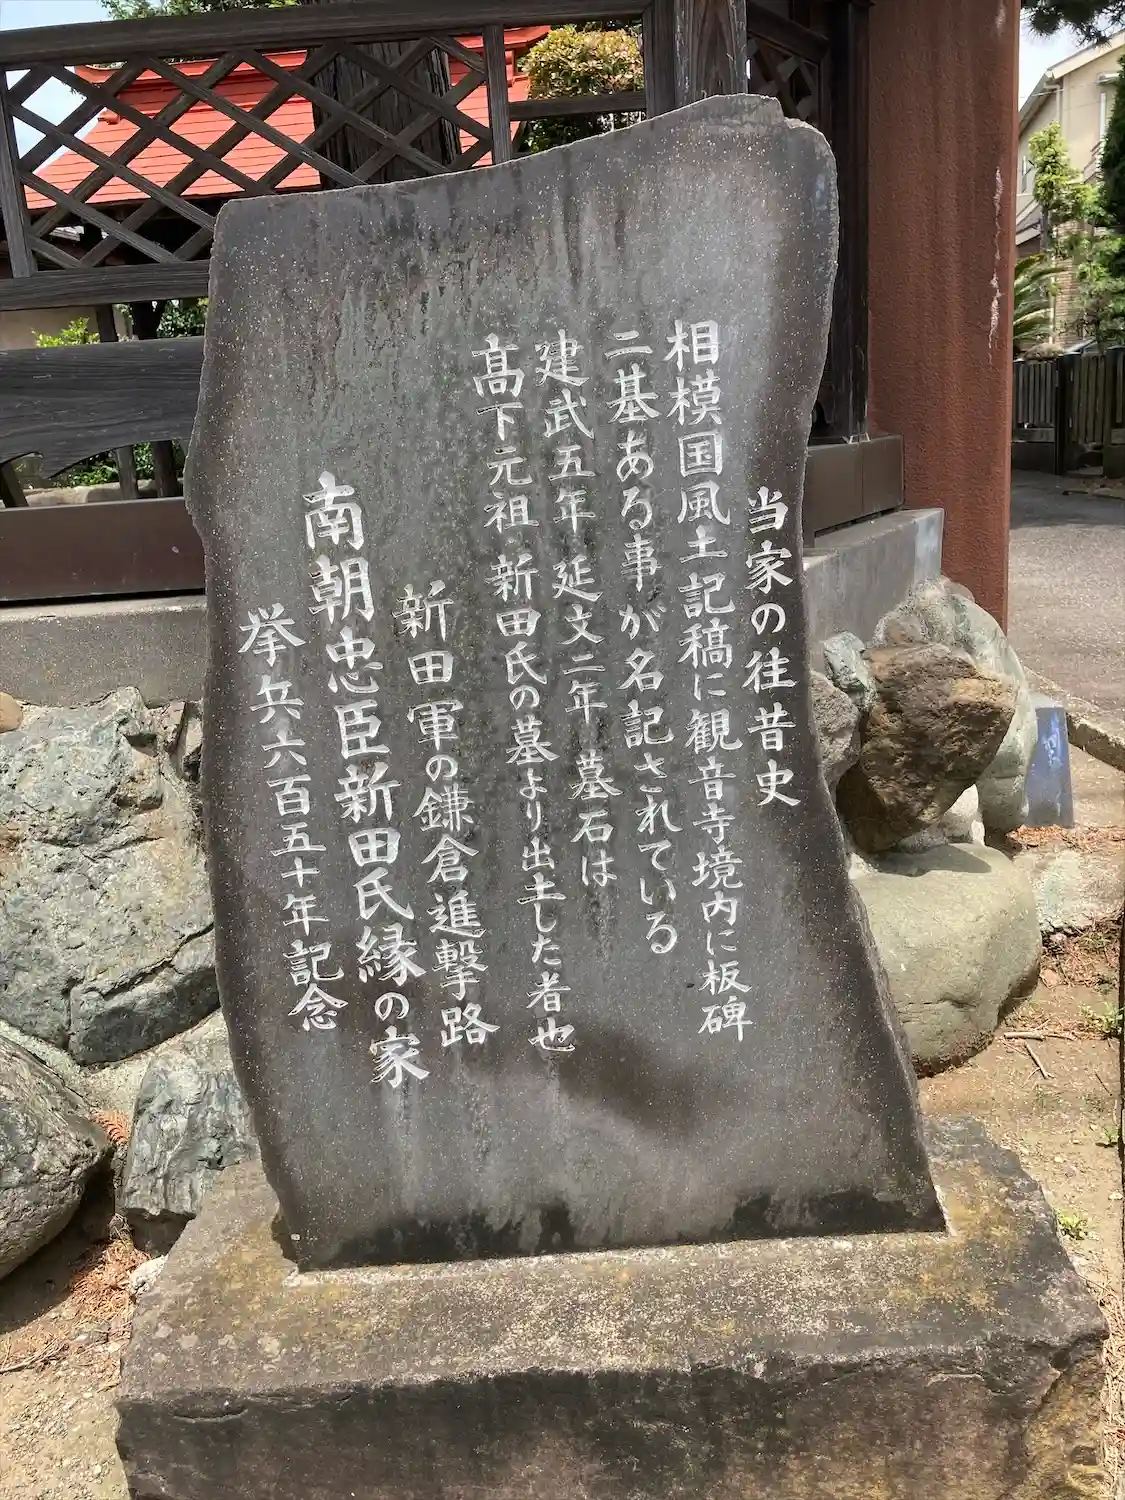 当家の往昔史
相模国風土記稿に観音寺境内に板碑
二基ある事が名記されている
建武五年延文二年墓石は
髙下元祖新田氏の墓より出土した者也
新田軍の鎌倉進撃路
南朝忠臣新田氏縁の家
挙兵六百五十年記念